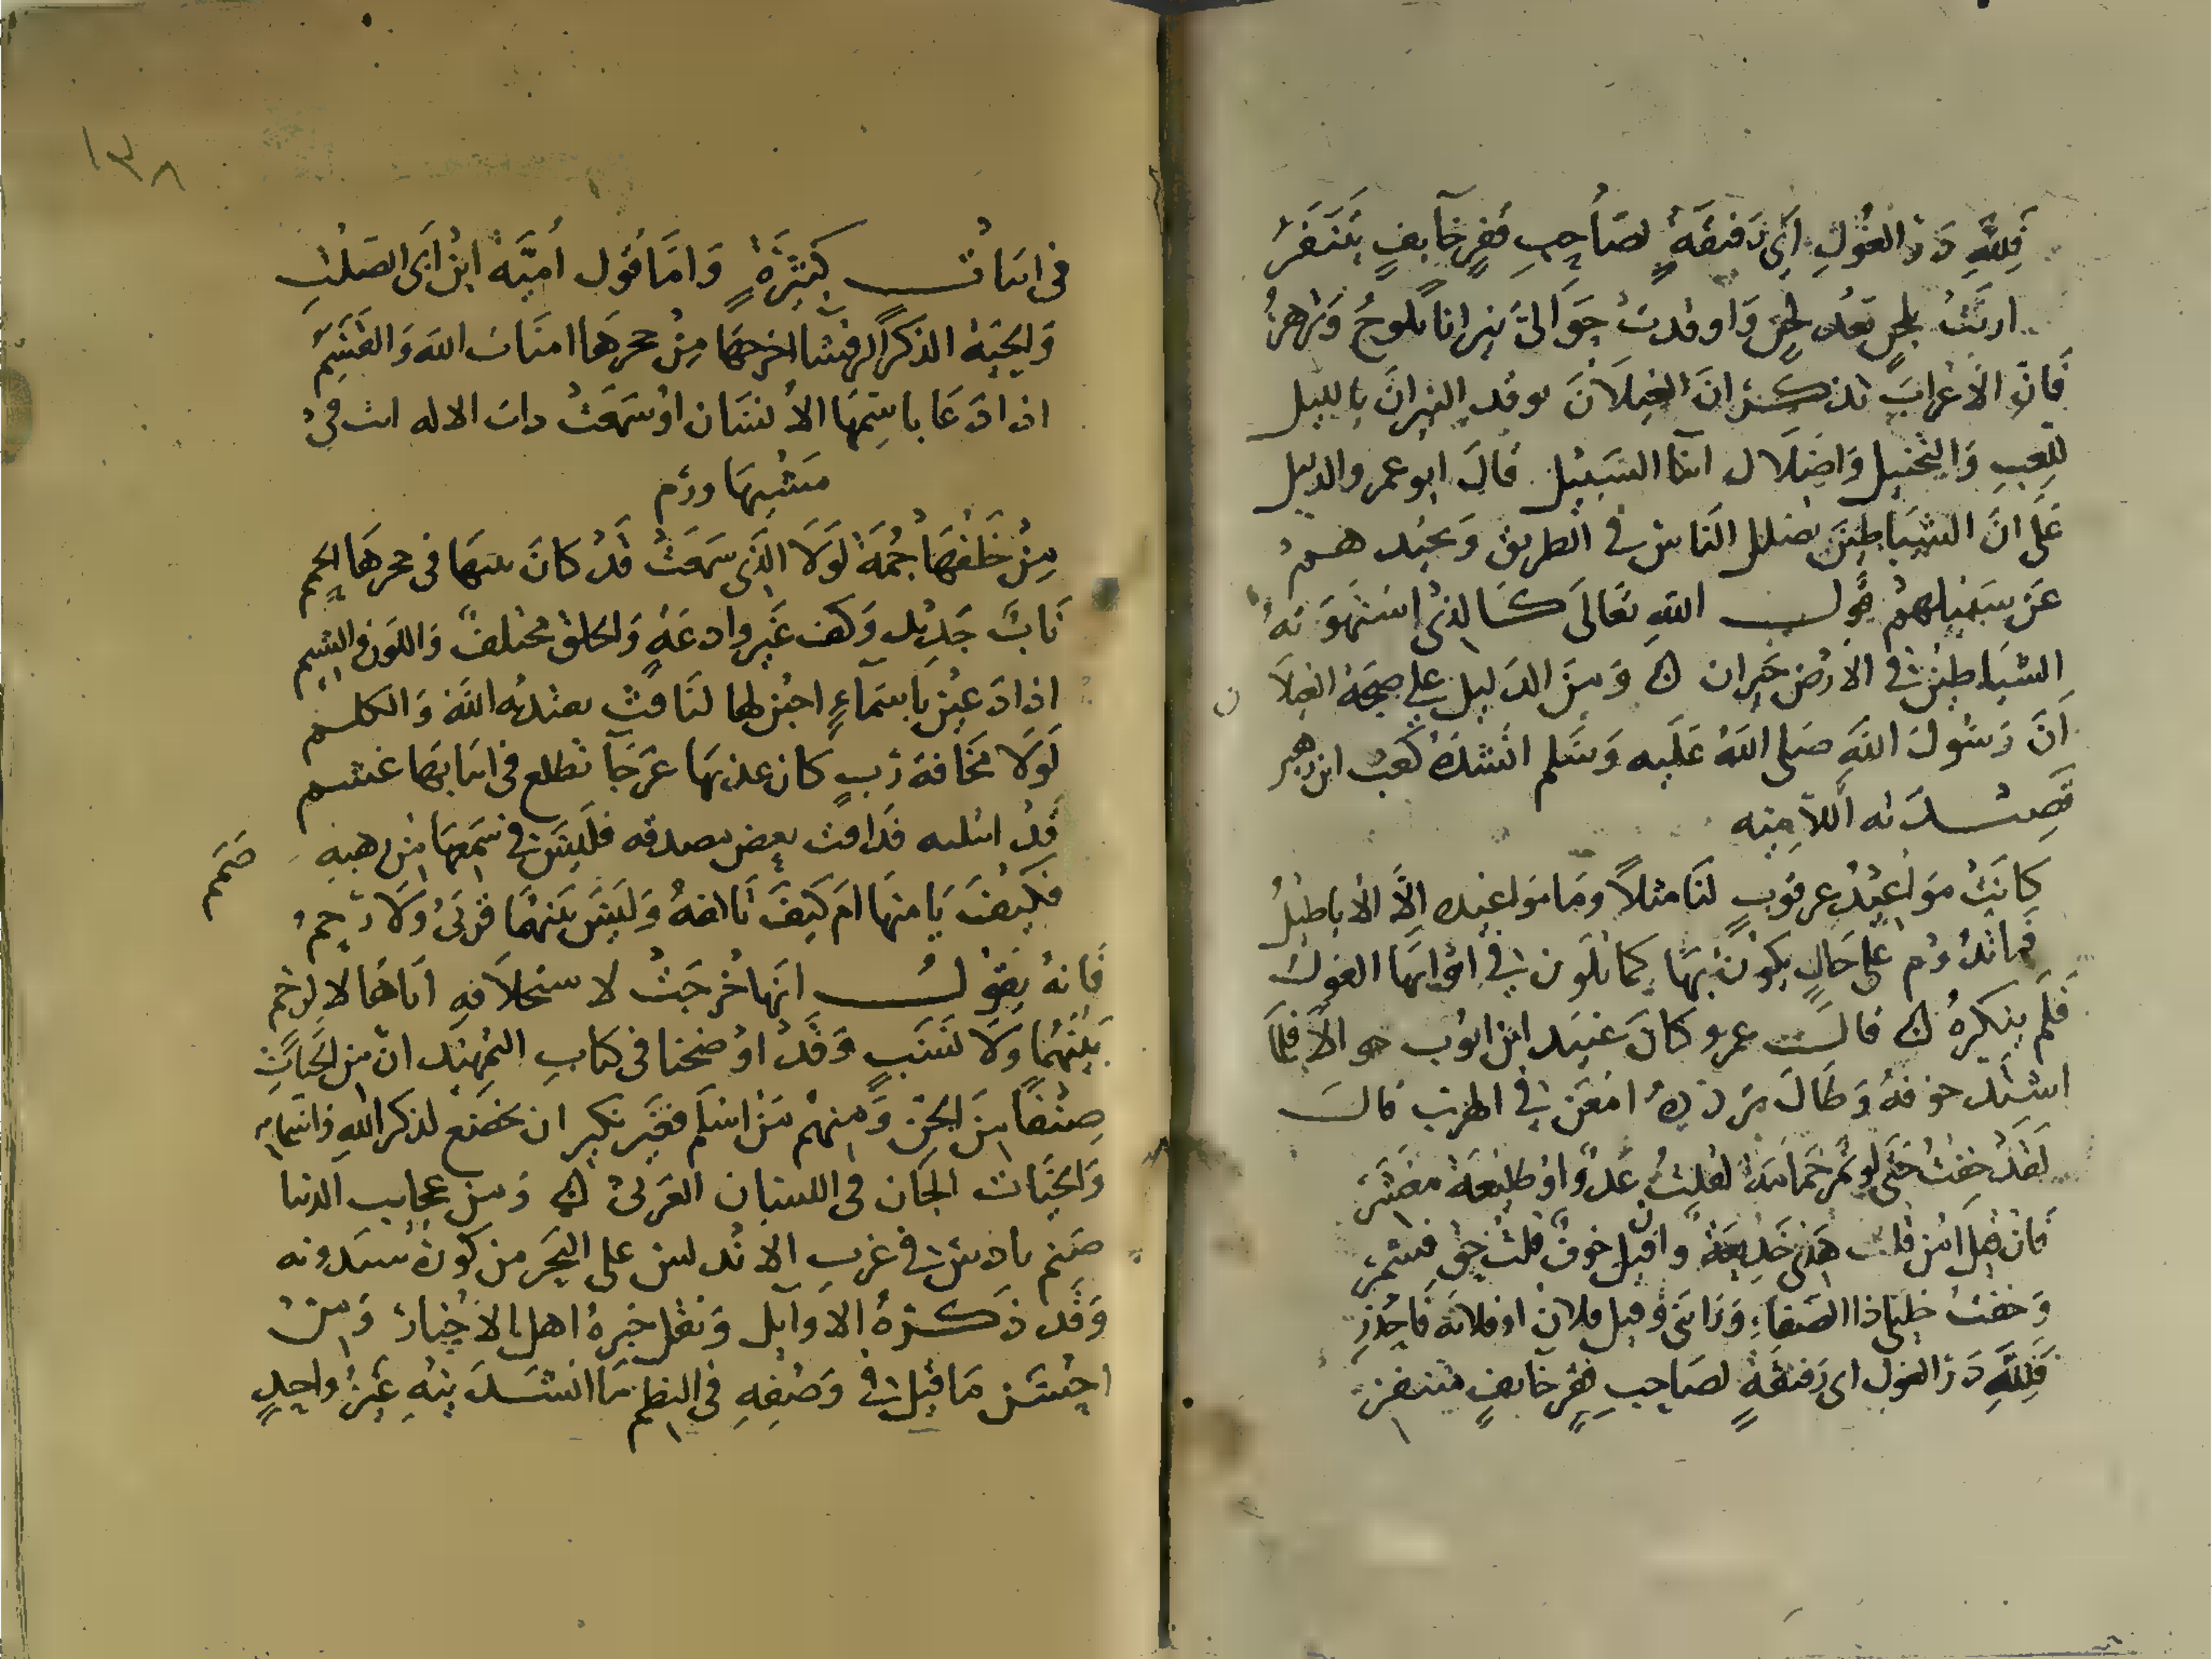 فلله در الغول اي رفيقة لصاحب قفر خايف يتنفر
ارنت بلحن بعد لحن واوقدت حوالي نيرانا تلوح وتزهر
فان الاعراب تذكر ان الغيلان توقد النيران بالليل
للعب والتخييل واضلال ابنا السبيل قال ابو عمر والدليل
على ان الشياطين تضلل الناس في الطريق وتحيد هم
عن سبيلهم قول الله تعالى كالذي استهوته
الشياطين في الارض حيران ومن الدليل على صحة الغيلان
ان رسول الله صلى الله عليه وسلم انشده كعب ابن زهير
قصيدته اللامية
كانت مواعيد عرقوب لنا مثلا وما مواعيده الا الاباطيل
فما تدوم على حال تكون بها كما تلون في اثوابها الغول
فلم ينكره قال عمرو كان عبيد ابن ايوب جوالا فلما
اشتد خوفه وطال تردده امعن في الهرب قال
لقد خفت حتى لو تمر حمامة لقلت عدو او طليعة معشر
فان قيل امن قلت هذي خديعة وان قيل خوف قلت حق فشمر
وخفت خليلي ذا الصفاء ورابني وقيل فلان او فلانة فاحذر
فلله در الغول اي رفيقة لصاحب قفر خايف متنفر
١٣٨
في ابيات كثيرة واما قول امية ابن ابي الصلت
والحية الذكر الرقشا اخرجها من جحرها امنات الله والقسم
اذا دعا باسمها الانسان او سمعت ذات الاله اتت في
مشيها رزم
من خلفها حمة لولا الذي سمعت قد كان بيتها في جحرها الحمم
ناب جديل وكف غير وادعة والخلق مختلف واللون والشيم
اذا دعين باسماء اجبن لها لنافث يعتديه الله والكلم
لولا مخافة رب كان عذبها عرجا تظلع في انيابها عسم
قد بلته فذاقت بعض مصدقه فليس في سمعها من رهبة صمم
فكيف يامنها ام كيف تالفه وليس بينهما قربى ولا رحم
فانه يقول انها خرجت لاستحلافه اياها لا لرحم
بينهما ولا نسب وقد اوضحنا في كتاب التمهيد ان من الحيات
صنفا من الجن ومنهم من اسلم فغير نكير ان تخضع لذكر الله واسمائه
والحيات الجان في اللسان العربي ومن عجايب الدنيا
صنم بادس في غرب الاندلس على البحر من كورة شدونه
وقد ذكره الاوايل ونقل خبره اهل الاخبار ومن
احسن ما قيل في وصفه في النظم ما انشدنيه غير واحد